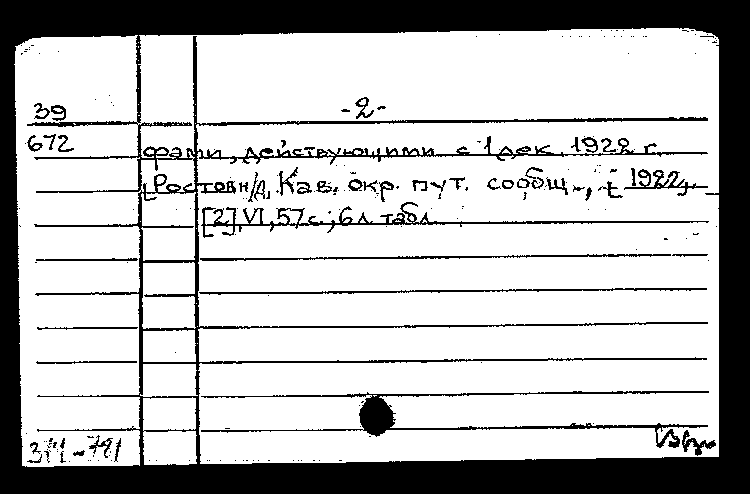 39
-2-
672
фами, действующими с 1 дек. 1922 г.
[Ростов н/Д, Кав. окр. пут. сообщ., [1922].
[2], VI, 57 с.; 6 л. табл.